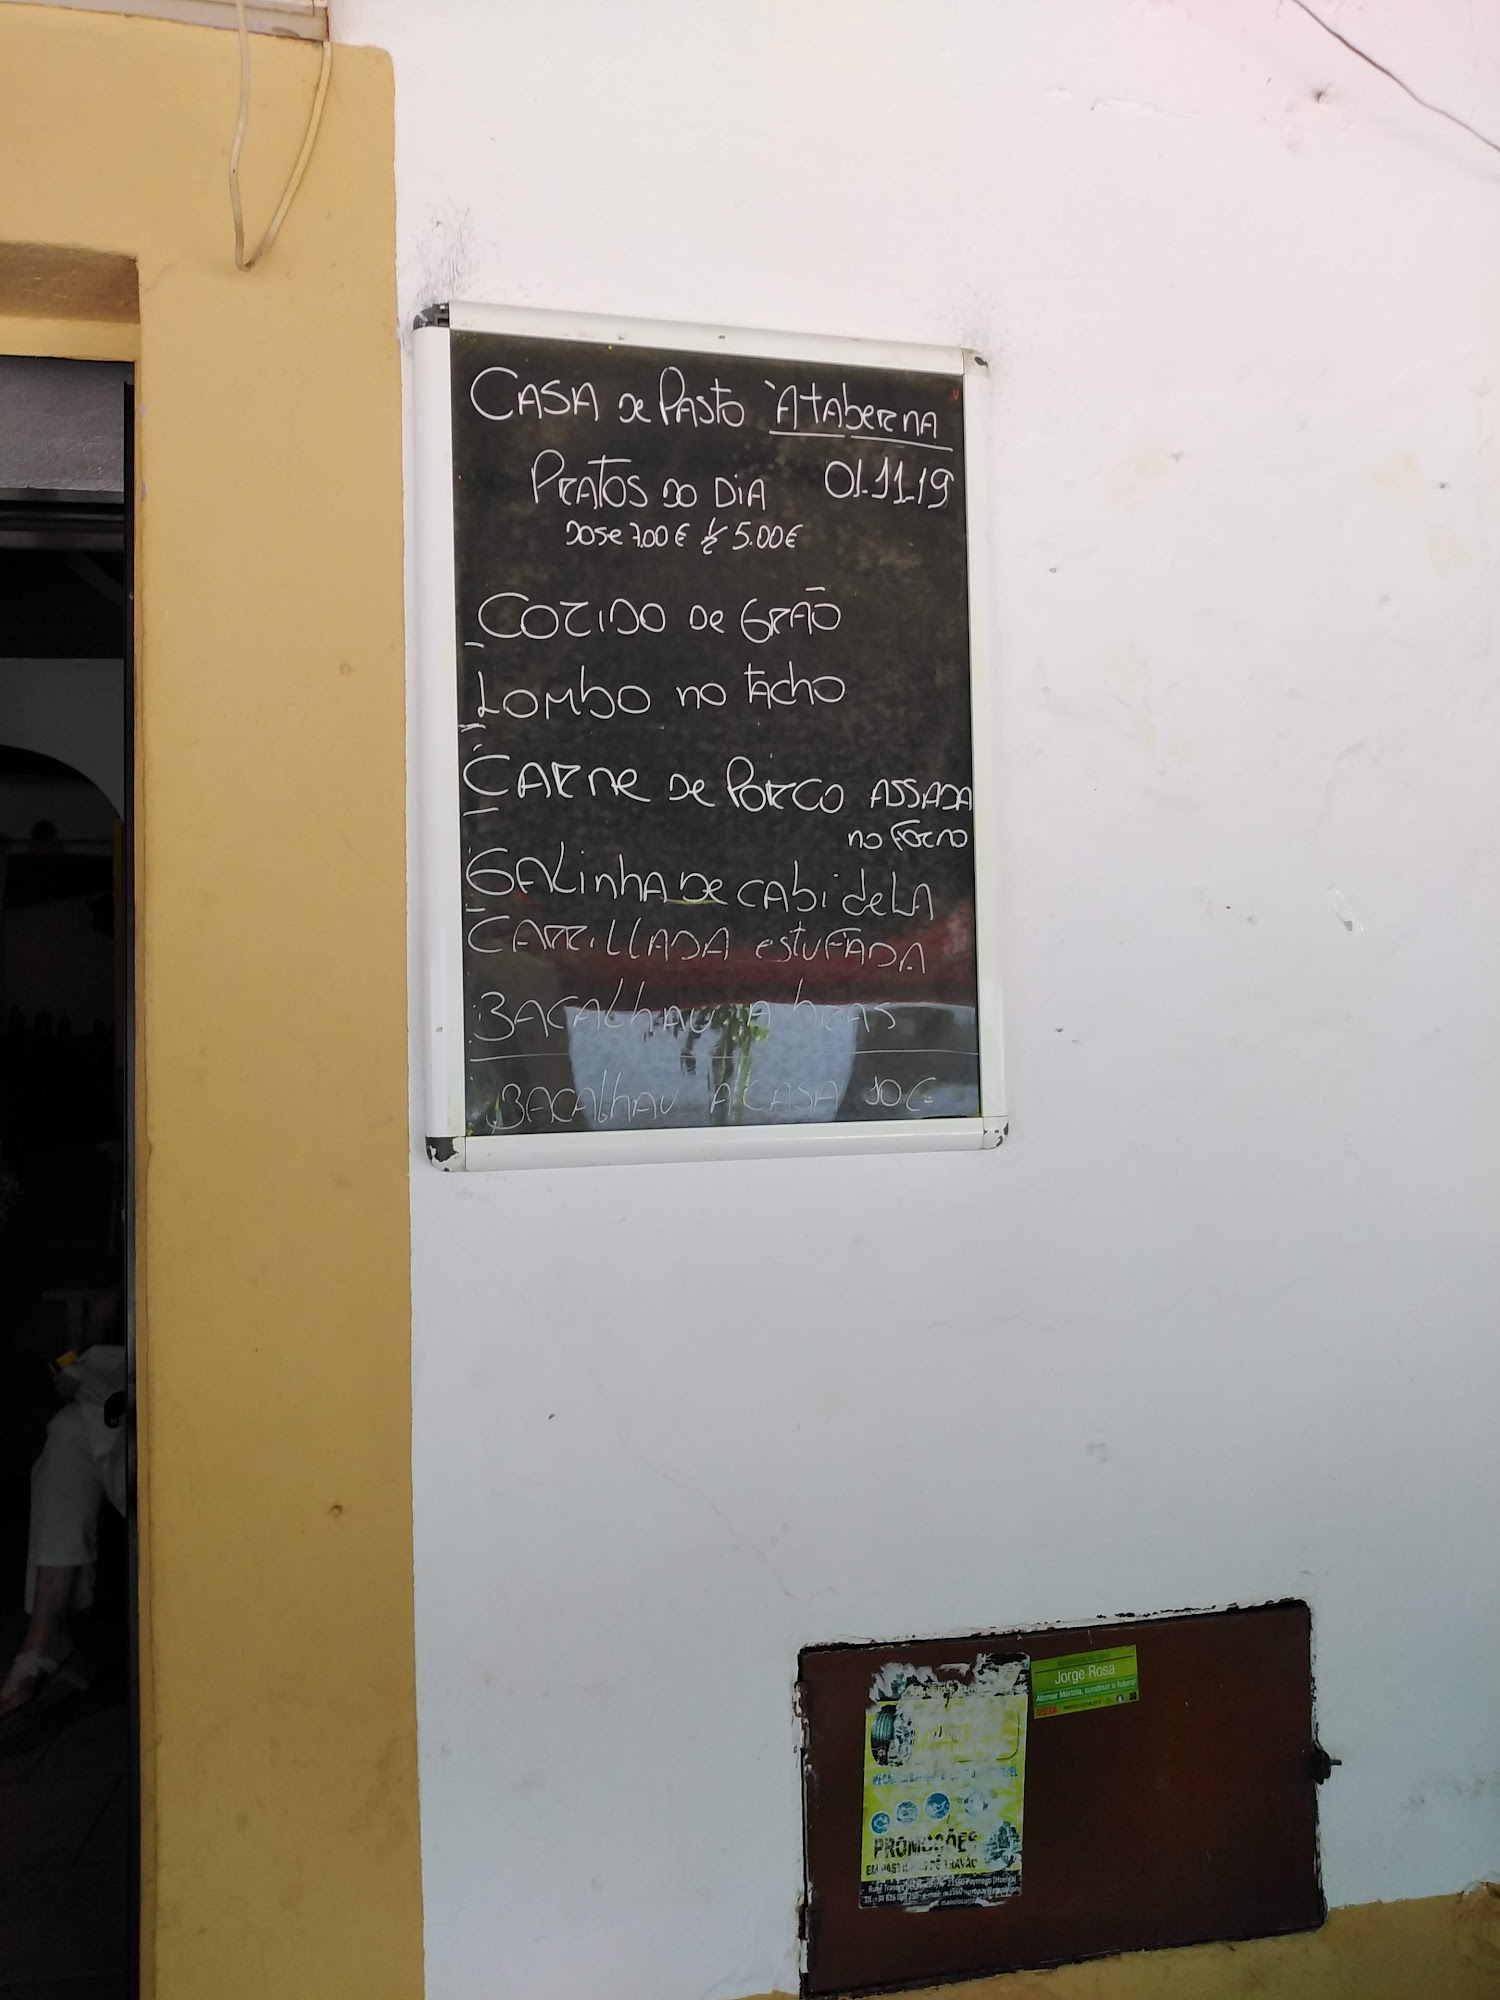 CASA de PASTO `ATAbeRNA
PRATOS DO DIA 01.11.19
DOSE 7.00 € 1/2 5.00 €
COZIDO De GRÃO
LOMbO no TAchO
CARne De PORCO ASSADA
no FORNO
GALinhA De CAbideLA
CARRILLADA eSTUFADA
BACALhAU A bRAS
BACALhAU A CASA 10 €
Jorge Rosa
Afirmar Mértola, construir o futuro!
VOTA
PROMOÇÕES